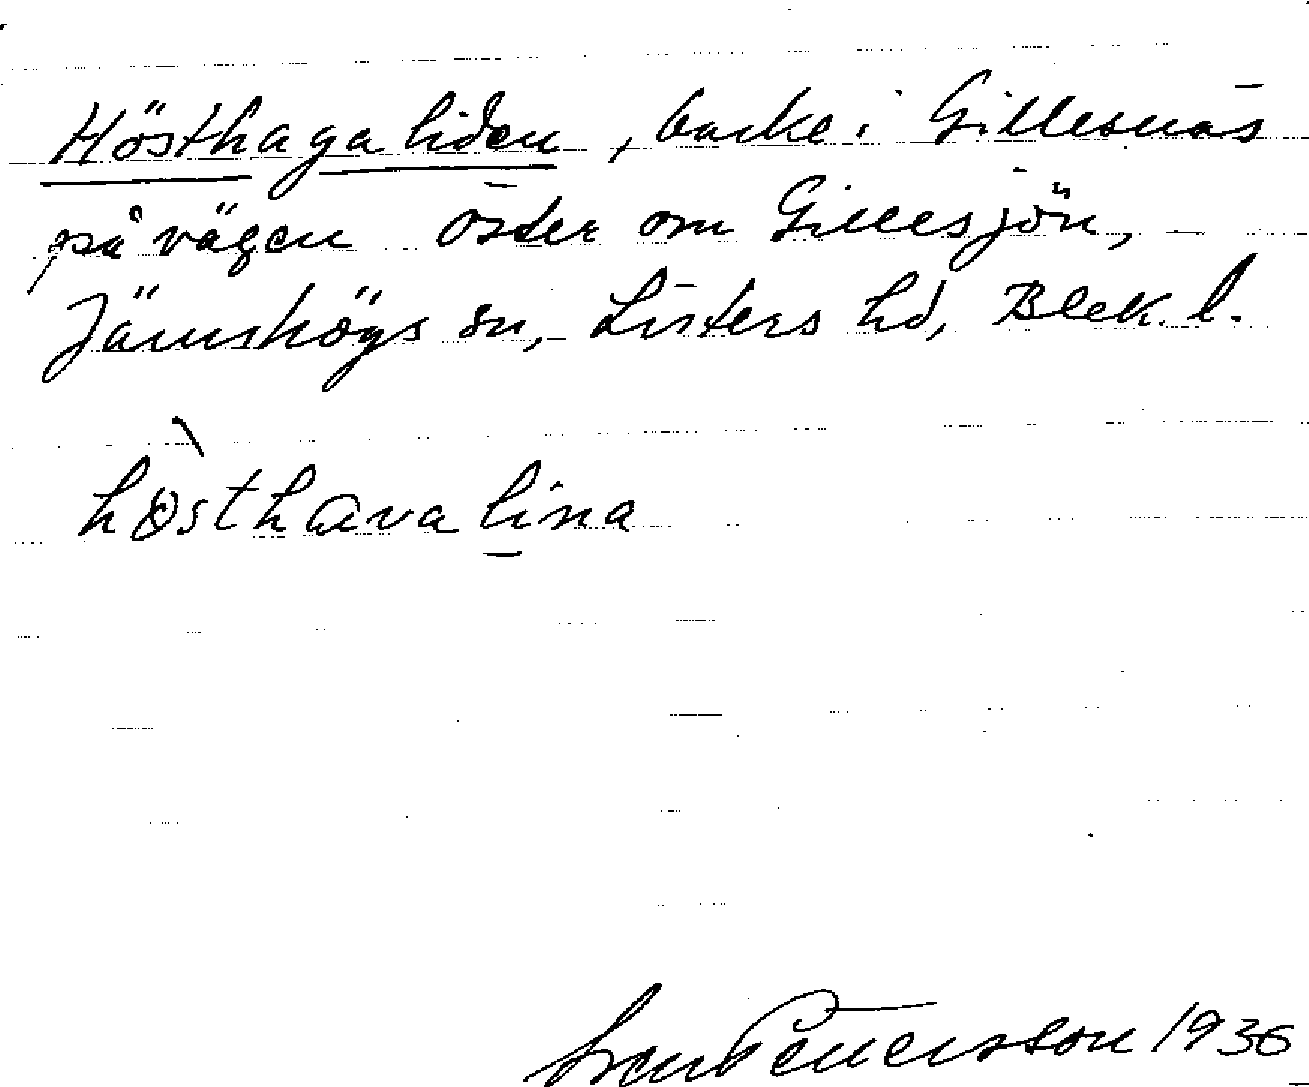 Hösthagaliden, backe i Gillesnäs
på vägen öster om Gillesjön,
Jämshögs sn, Listers hd, Blek. l.
høsthava lina
Sven Petersson 1936